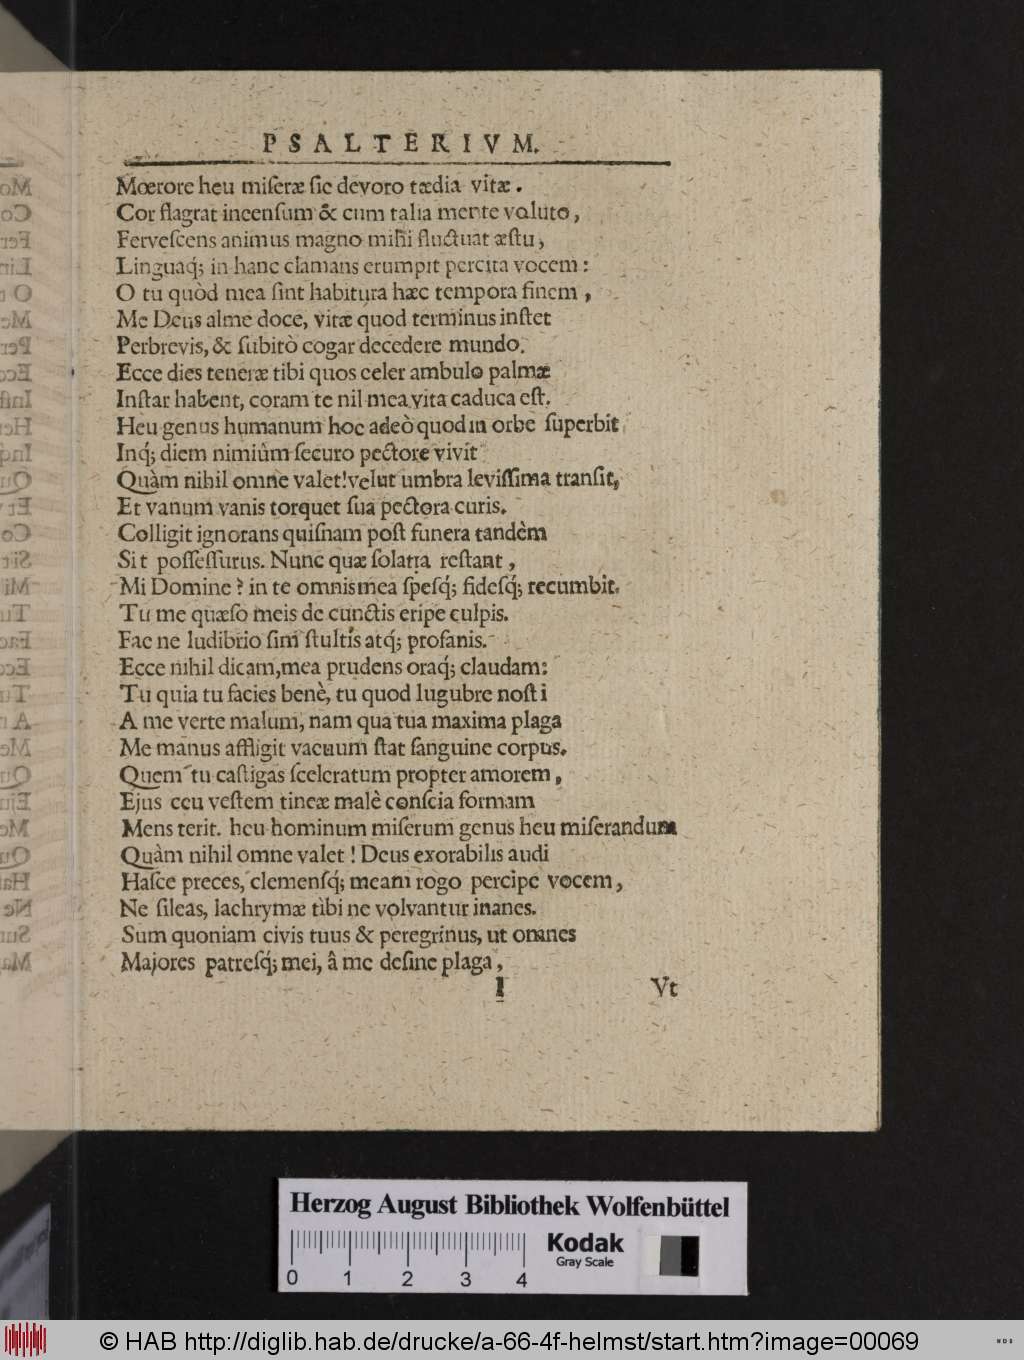 PSALTERIVM.
Mœrore heu miſeræ ſic devoro tædia vitæ.
Cor flagrat incenſum & cum talia mente voluto,
Ferveſcens animus magno mihi fluctuat æſtu,
Linguaq́; in hanc clamans erumpit percita vocem:
O tu quòd mea ſint habitura hæc tempora finem,
Me Deus alme doce, vitæ quod terminus inſtet
Perbrevis, & ſubitò cogar decedere mundo.
Ecce dies teneræ tibi quos celer ambulo palmæ
Inſtar habent, coram te nil mea vita caduca eſt.
Heu genus humanum hoc adeò quod in orbe ſuperbit
Inq́; diem nimiûm ſecuro pectore vivit
Quàm nihil omne valet! velut umbra leviſſima tranſit,
Et vanum vanis torquet ſua pectora curis.
Colligit ignorans quiſnam poſt funera tandèm
Sit poſſeſſurus. Nunc quæ ſolatia reſtant,
Mi Domine? in te omnis mea ſpeſq́; fideſq́; recumbit.
Tu me quæſo meis de cunctis eripe culpis.
Fac ne ludibrio ſim ſtultis atq́; profanis.
Ecce nihil dicam, mea prudens oraq́; claudam:
Tu quia tu facies benè, tu quod lugubre noſti
A me verte malum, nam qua tua maxima plaga
Me manus affligit vacuum ſtat ſanguine corpus.
Quem tu caſtigas ſceleratum propter amorem,
Ejus ceu veſtem tineæ malè conſcia formam
Mens terit. heu hominum miſerum genus heu miſerandum
Quàm nihil omne valet! Deus exorabilis audi
Haſce preces, clemenſq́; meam rogo percipe vocem,
Ne ſileas, lachrymæ tibi ne volvantur inanes.
Sum quoniam civis tuus & peregrinus, ut omnes
Majores patreſq́; mei, â me deſine plaga,
I Vt
Herzog August Bibliothek Wolfenbüttel
0 1 2 3 4
Kodak
Gray Scale
© HAB http://diglib.hab.de/drucke/a-66-4f-helmst/start.htm?image=00069